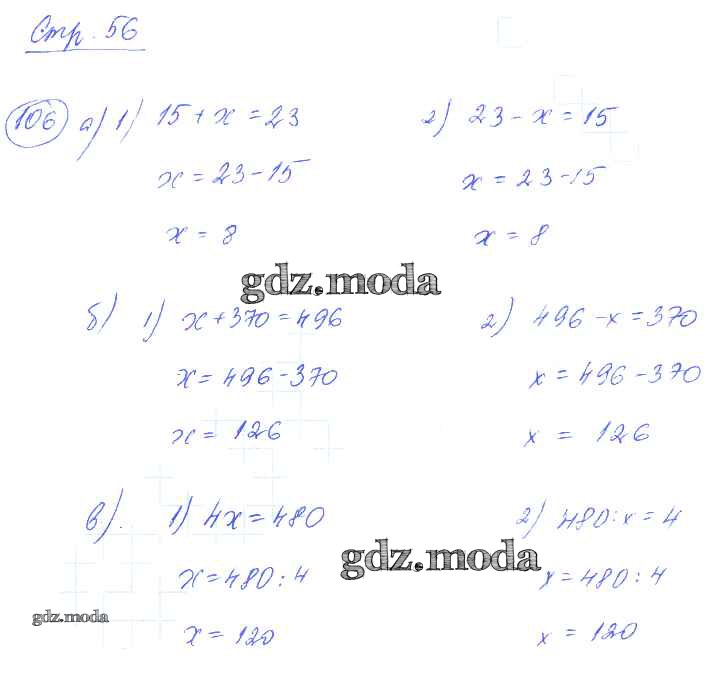 Стр. 56
106 а) 1) 15 + x = 23 2) 23 - x = 15
x = 23 - 15 x = 23 - 15
x = 8 x = 8
gdz.moda
б) 1) x + 370 = 496 2) 496 - x = 370
x = 496 - 370 x = 496 - 370
x = 126 x = 126
в). 1) 4x = 480 2) 480 : x = 4
gdz.moda
x = 480 : 4 x = 480 : 4
gdz.moda
x = 120 x = 120